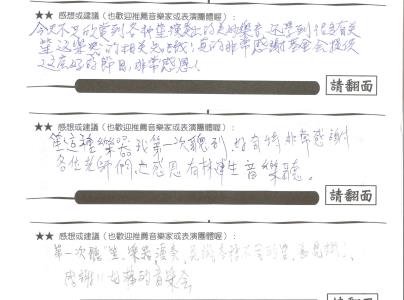 ★★ 感想或建議（也歡迎推薦音樂家或表演團體喔）：
今天不只欣賞到各種笙演奏出的美妙樂音,還學到很多有關
笙這樂器的相關知識!真的非常感謝基金會提供
這麼好的節目,非常感恩!
請翻面
★★ 感想或建議（也歡迎推薦音樂家或表演團體喔）：
笙這種樂器我第一次聽到,好奇特非常感謝
各位老師們,也感恩有林建生音樂聽。
請翻面
★★ 感想或建議（也歡迎推薦音樂家或表演團體喔）：
第一次聽"笙"樂器演奏,見識各種不同的笙,
的音樂會
請翻面